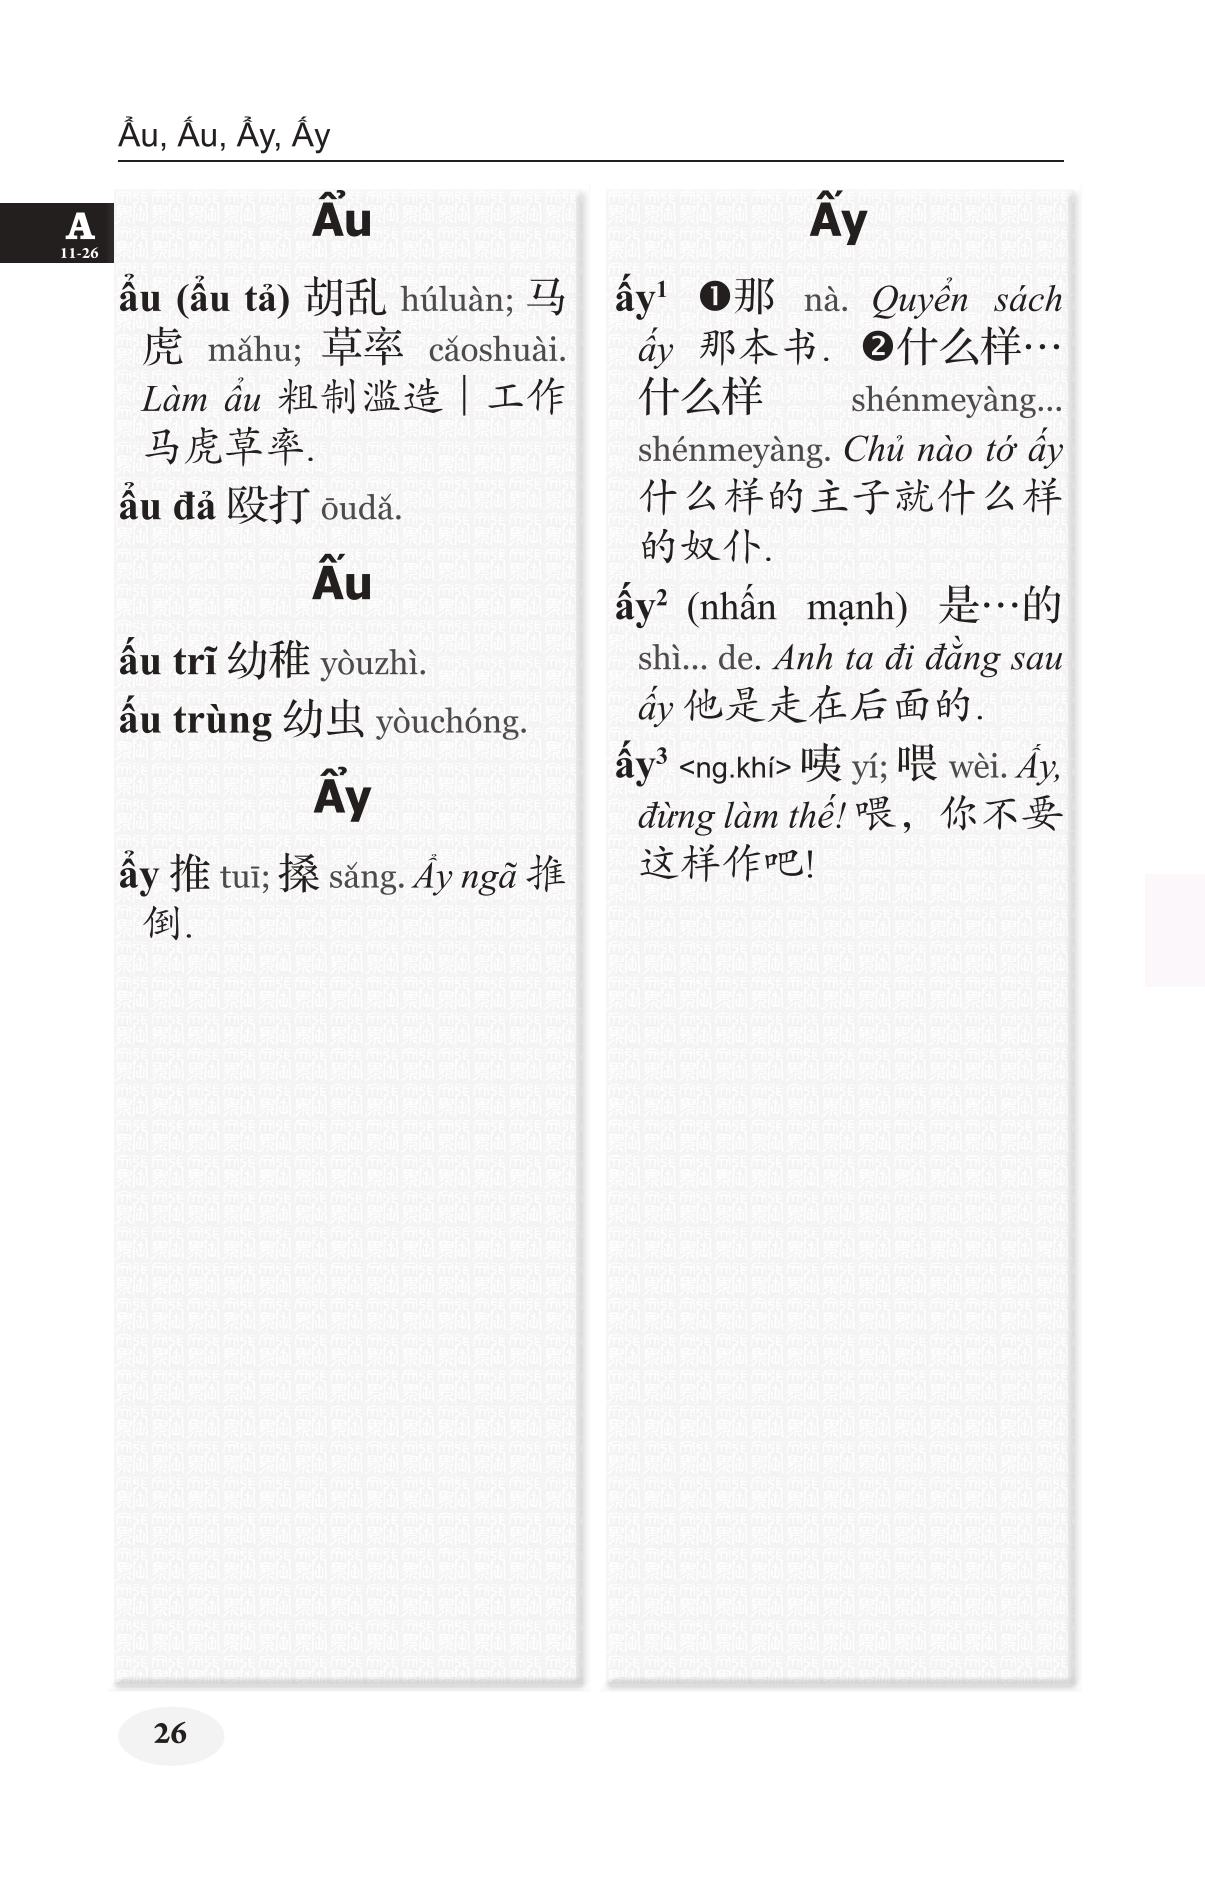 Ẩu, Ấu, Ẩy, Ấy
A
11-26
Ẩu
ẩu (ẩu tả) 胡乱 húluàn; 马
虎 mǎhu; 草率 cǎoshuài.
Làm ẩu 粗制滥造｜工作
马虎草率.
ẩu đả 殴打 ōudǎ.
Ấu
ấu trĩ 幼稚 yòuzhì.
ấu trùng 幼虫 yòuchóng.
Ẩy
ẩy 推 tuī; 搡 sǎng. Ẩy ngã 推
倒.
Ấy
ấy¹ ❶那 nà. Quyển sách
ấy 那本书. ❷什么样…
什么样 shénmeyàng...
shénmeyàng. Chủ nào tớ ấy
什么样的主子就什么样
的奴仆.
ấy² (nhấn mạnh) 是…的
shì... de. Anh ta đi đằng sau
ấy 他是走在后面的.
ấy³ <ng.khí> 咦 yí; 喂 wèi. Ấy,
đừng làm thế! 喂，你不要
这样作吧!
26